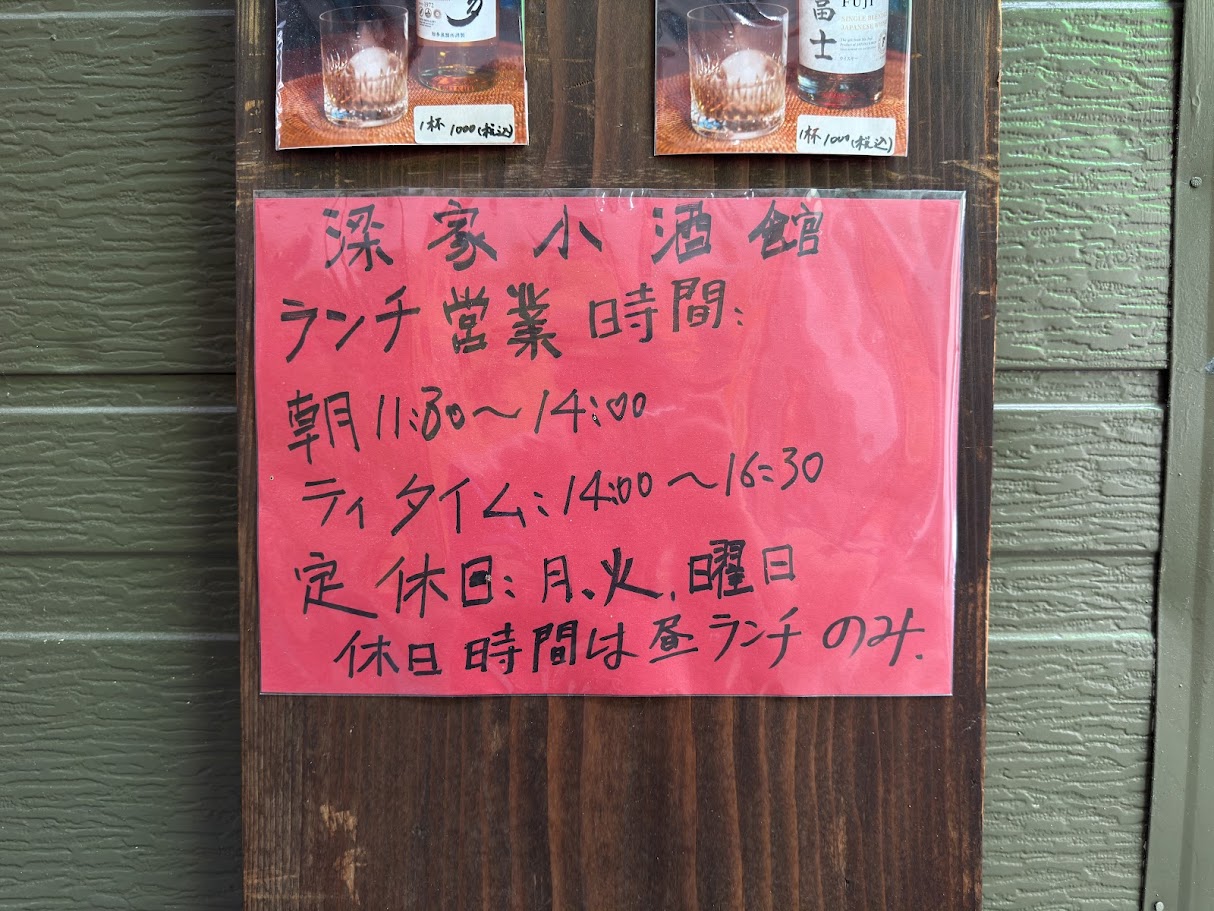 富士
FUJI
SINGLE BLENDED
JAPANESE WHISKY
1杯 1000(税込)
1杯 1000(税込)
梁家小酒館
ランチ営業時間:
朝11:30～14:00
ティタイム:14:00～16:30
定休日:月、火、曜日
休日時間は昼ランチのみ.